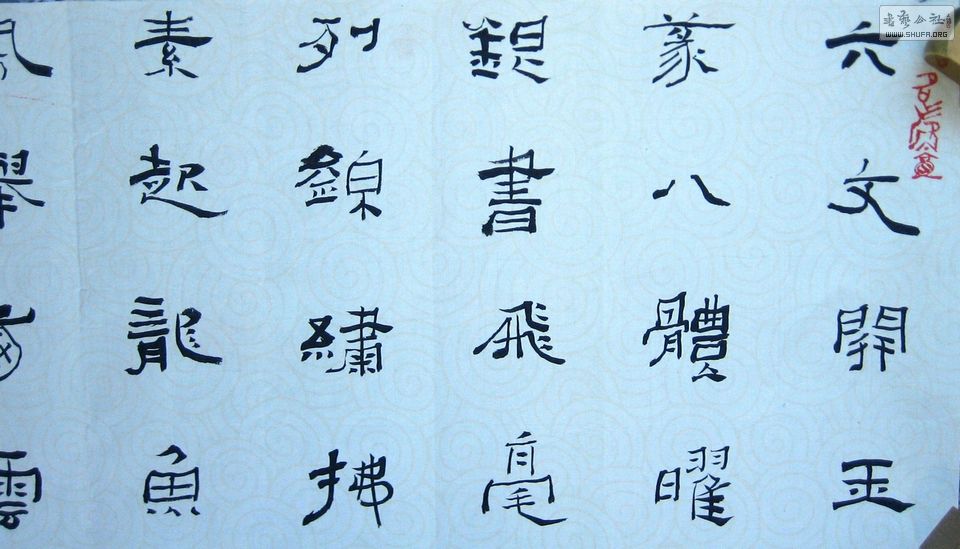 六文開玉
篆八體曜
銀書飛毫
列錦繡拂
素起龍魚
舉雲
書藝公社
WWW.SHUFA.ORG